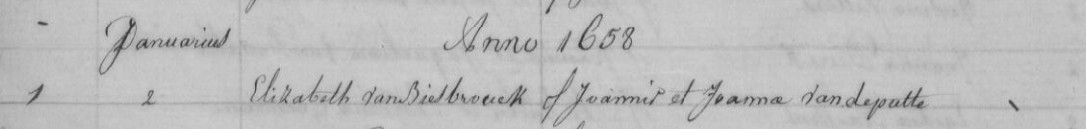 Januarius Anno 1658
1 2 Elizabeth van Biesbrouck f Joannis et Joannæ vandeputte